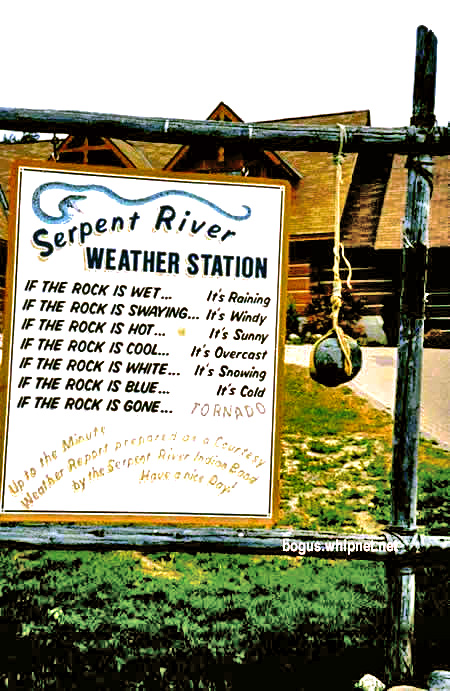 Serpent River
WEATHER STATION
IF THE ROCK IS WET... It's Raining
IF THE ROCK IS SWAYING... It's Windy
IF THE ROCK IS HOT... It's Sunny
IF THE ROCK IS COOL... It's Overcast
IF THE ROCK IS WHITE... It's Snowing
IF THE ROCK IS BLUE... It's Cold
IF THE ROCK IS GONE... TORNADO
Up to the Minute
Weather Report prepared as a Courtesy
by the Serpent River Indian Band
Have a nice Day!
bogus.whipnet.net